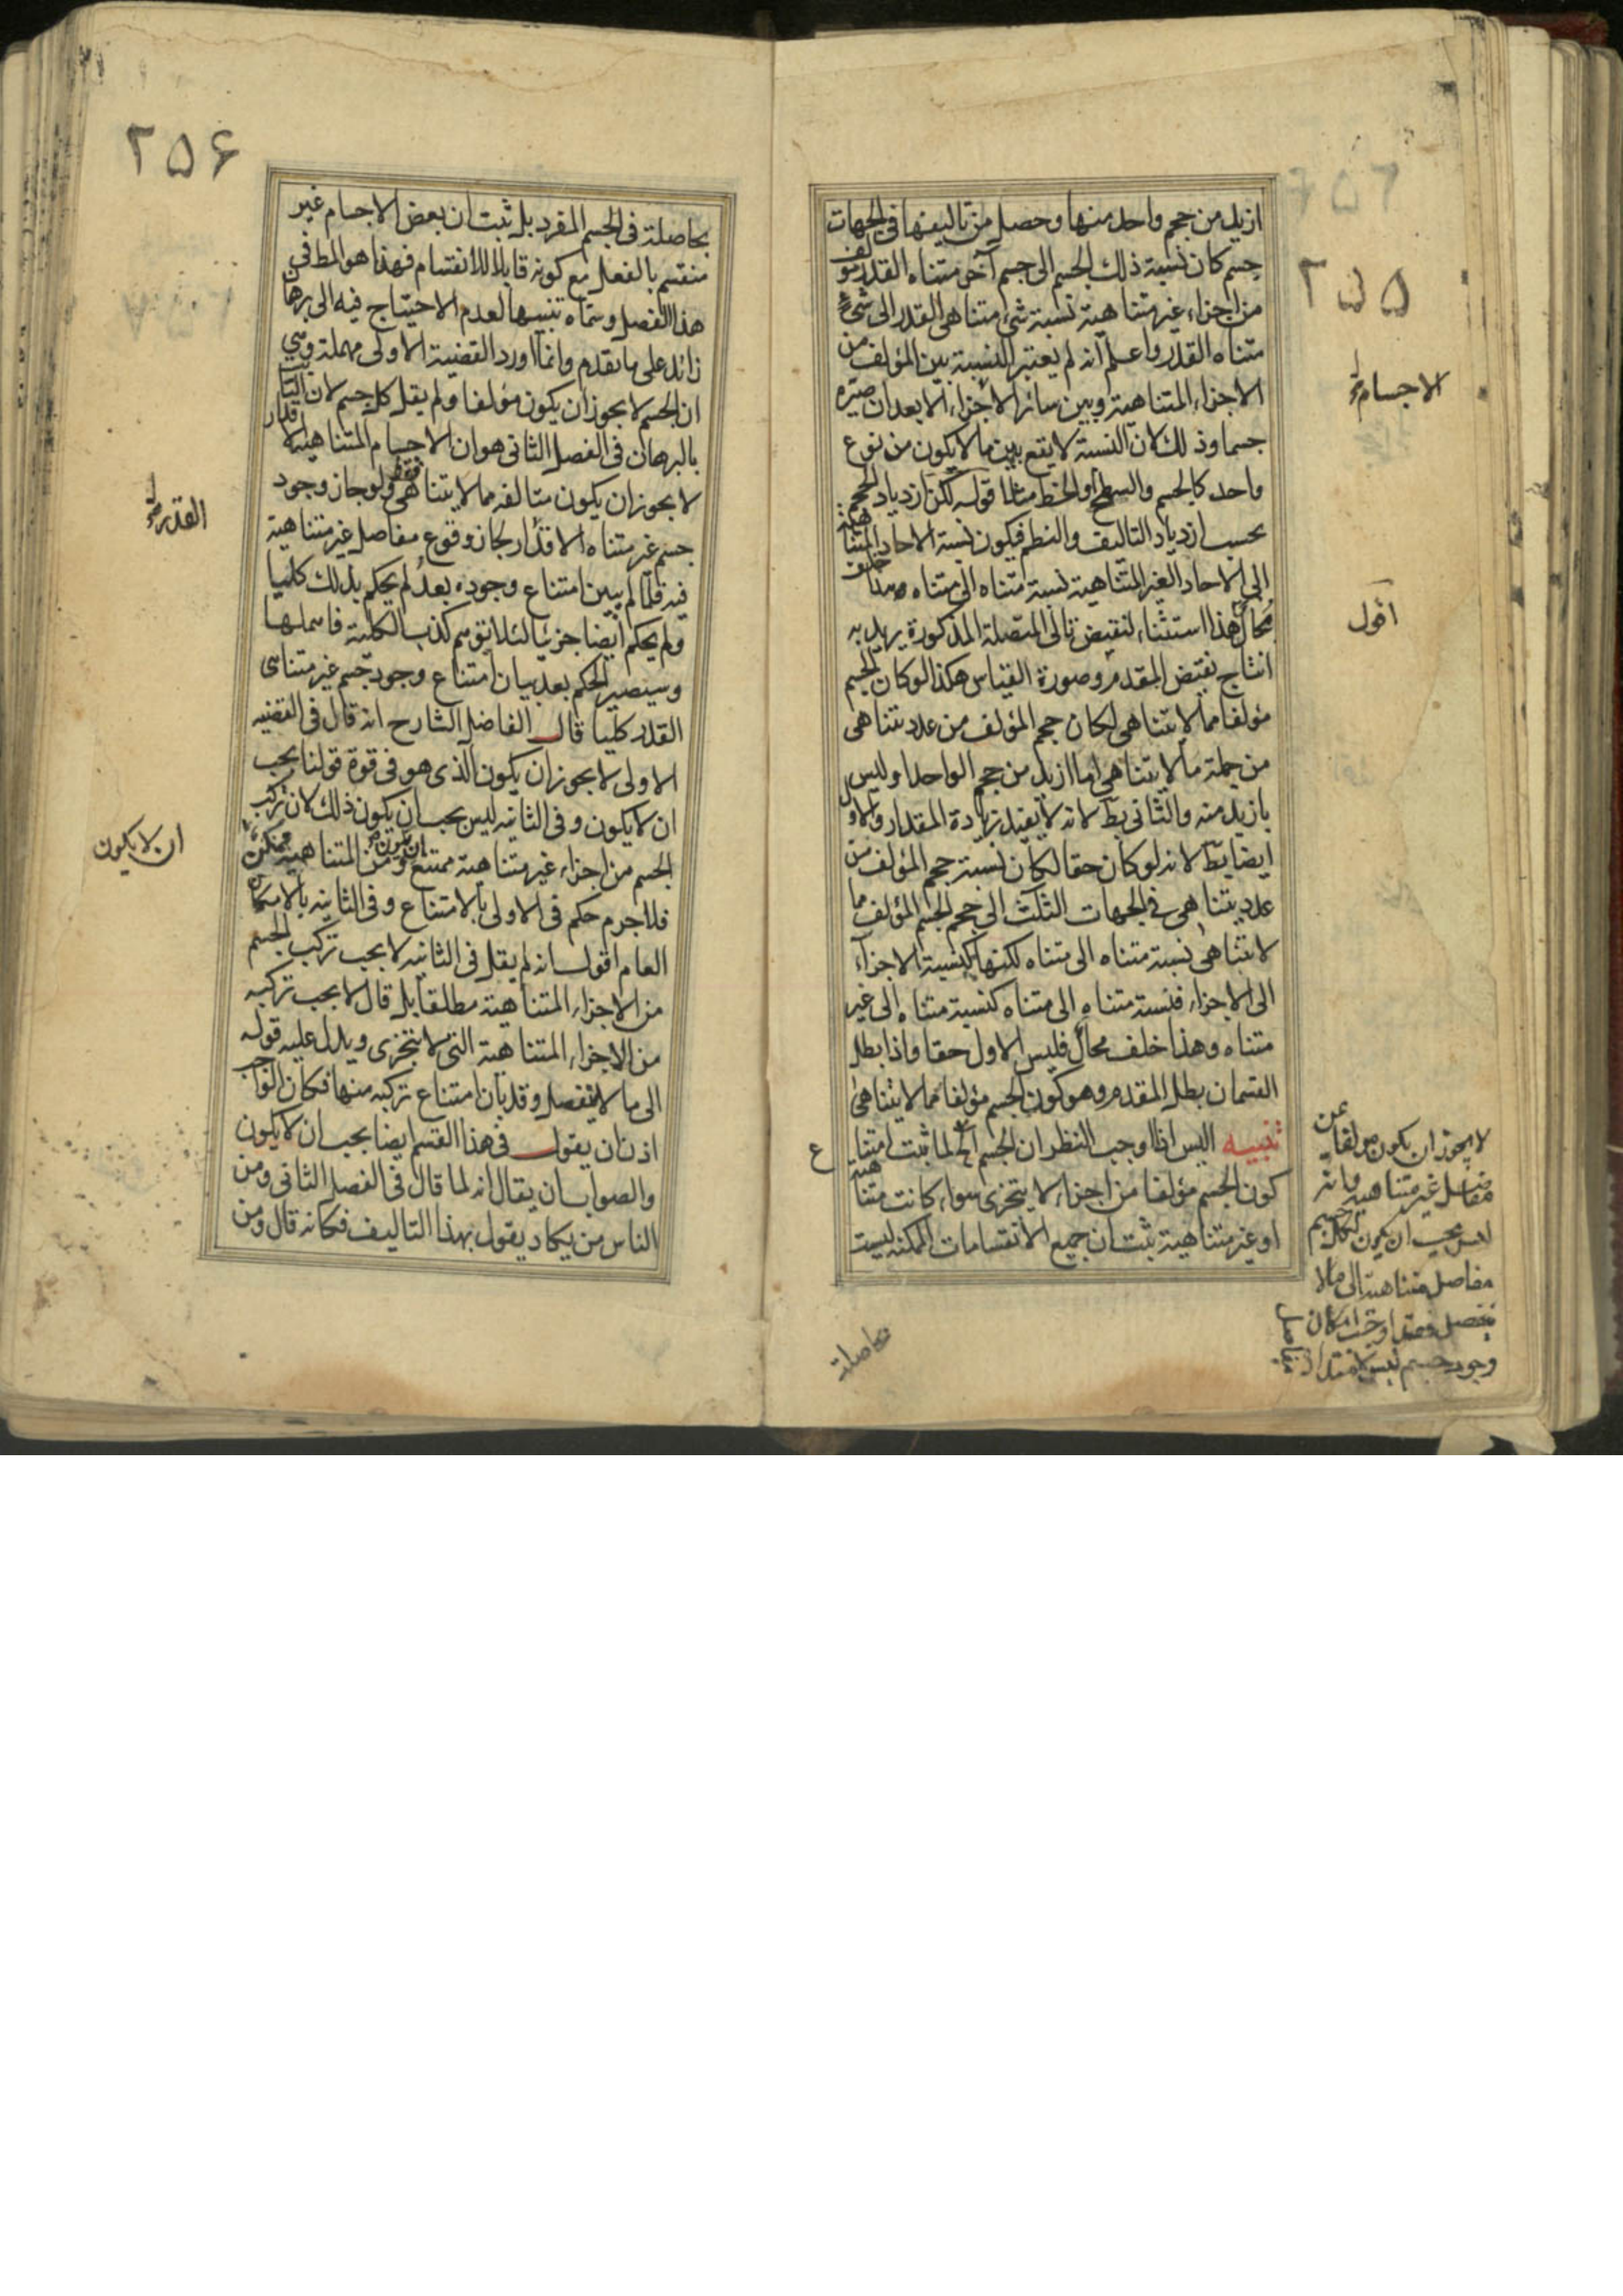 ٢٥٥
ازيد من حجم واحد منها وحصل من تاليفها في الجهات
جسم كان نسبة ذلك الجسم الى جسم آخر متناه القدر مؤلف
من اجزاء غير متناهية نسبة شئ متناهى القدر الى شئ
متناه القدر واعلم انه لم يعتبر النسبة بين المؤلف من
الاجزاء المتناهية وبين سائر الاجزاء الا بعد ان صيّره
جسما وذلك لان النسبة لا يقع بين ما لا يكون من نوع
واحد كالجسم والسطح او الخط مثلا قوله لكن ازدياد الحجم
بحسب ازدياد التاليف والنظم فيكون نسبة الاحاد المتناهية
الى الاحاد الغير المتناهية نسبة متناه الى متناه وهذا خلف
محال هذا استثناء لنقيض تالى المتصلة المذكورة يريد به
انتاج نقيض المقدم وصورة القياس هكذا لو كان الجسم
مؤلفا مما لا يتناهى لكان حجم المؤلف من عدد يتناهى
من جملة ما لا يتناهى اما ازيد من حجم الواحد او ليس
بازيد منه والثانى بط لانه لا يفيد زيادة المقدار والاول
ايضا بط لانه لو كان حقا لكان نسبة حجم المؤلف من
عدد يتناهى في الجهات الثلث الى حجم الجسم المؤلف مما
لا يتناهى نسبة متناه الى متناه لكنها كنسبة الاجزاء
الى الاجزاء فنسبة متناه الى متناه كنسبة متناه الى غير
متناه وهذا خلف محال فليس الاول حقا واذا بطل
القسمان بطل المقدم وهو كون الجسم مؤلفا مما لا يتناهى
تنبيه اليس اذا اوجب النظر ان الجسم الخ لما ثبت امتناع
كون الجسم مؤلفا من اجزاء لا يتجزى سواء كانت متناهية
او غير متناهية ثبت ان جميع الانقسامات الممكنة ليست
الاجسام
اقول
لا يجوز ان يكون مؤلفا من
مفاصل غير متناهية وانه
ليس يجب ان يكون لكل جسم
مفاصل متناهية الى ما لا
ينفصل فقد اوجب امكان
وجود جسم ليس لامتداده مفاصل
بحاصلة
٢٥۶
بحاصلة في الجسم المفرد بل ثبت ان بعض الاجسام غير
منقسم بالفعل مع كونه قابلا للانقسام فهذا هو المط في
هذا الفصل وسماه تنبيها لعدم الاحتياج فيه الى برهان
زائد على ما تقدم وانما اورد القضية الاولى مهملة وهي
ان الجسم لا يجوز ان يكون مؤلفا ولم يقل كل جسم لان الثابت
بالبرهان في الفصل الثانى هو ان الاجسام المتناهية الاقدار
لا يجوز ان يكون متالفه مما لا يتناهى فقط ولو جاز وجود
جسم غير متناه الاقدار لجاز وقوع مفاصل غير متناهية
فيه فلما لم يبين امتناع وجوده بعد لم يحكم بذلك كليا
ولم يحكم ايضا جزئيا لئلا يتوهم كذب الكلية فاهملها
وسيصير الحكم بعد بيان امتناع وجود جسم غير متناهى
القدر كليا قال الفاضل الشارح انه قال في القضيه
الاولى لا يجوز ان يكون الذى هو في قوة قولنا يجب
ان لا يكون وفي الثانيه ليس يجب ان يكون ذلك لان تركب
الجسم من اجزاء غير متناهية ممتنع ومن المتناهية ممكن
فلا جرم حكم في الاولى بالامتناع وفي الثانيه بالامكان
العام اقول انه لم يقل في الثانيه لا يجب تركب الجسم
من الاجزاء المتناهية مطلقا بل قال لا يجب تركبه
من الاجزاء المتناهية التي لا تتجزى ويدل عليه قوله
الى ما لا ينفصل وقد بان امتناع تركبه منها فكان الواجب
اذن ان يقول في هذا القسم ايضا يجب ان لا يكون
والصواب ان يقال انه لما قال في الفصل الثانى ومن
الناس من يكاد يقول بهذا التاليف فكانه قال ومن
القدر
ان لا يكون